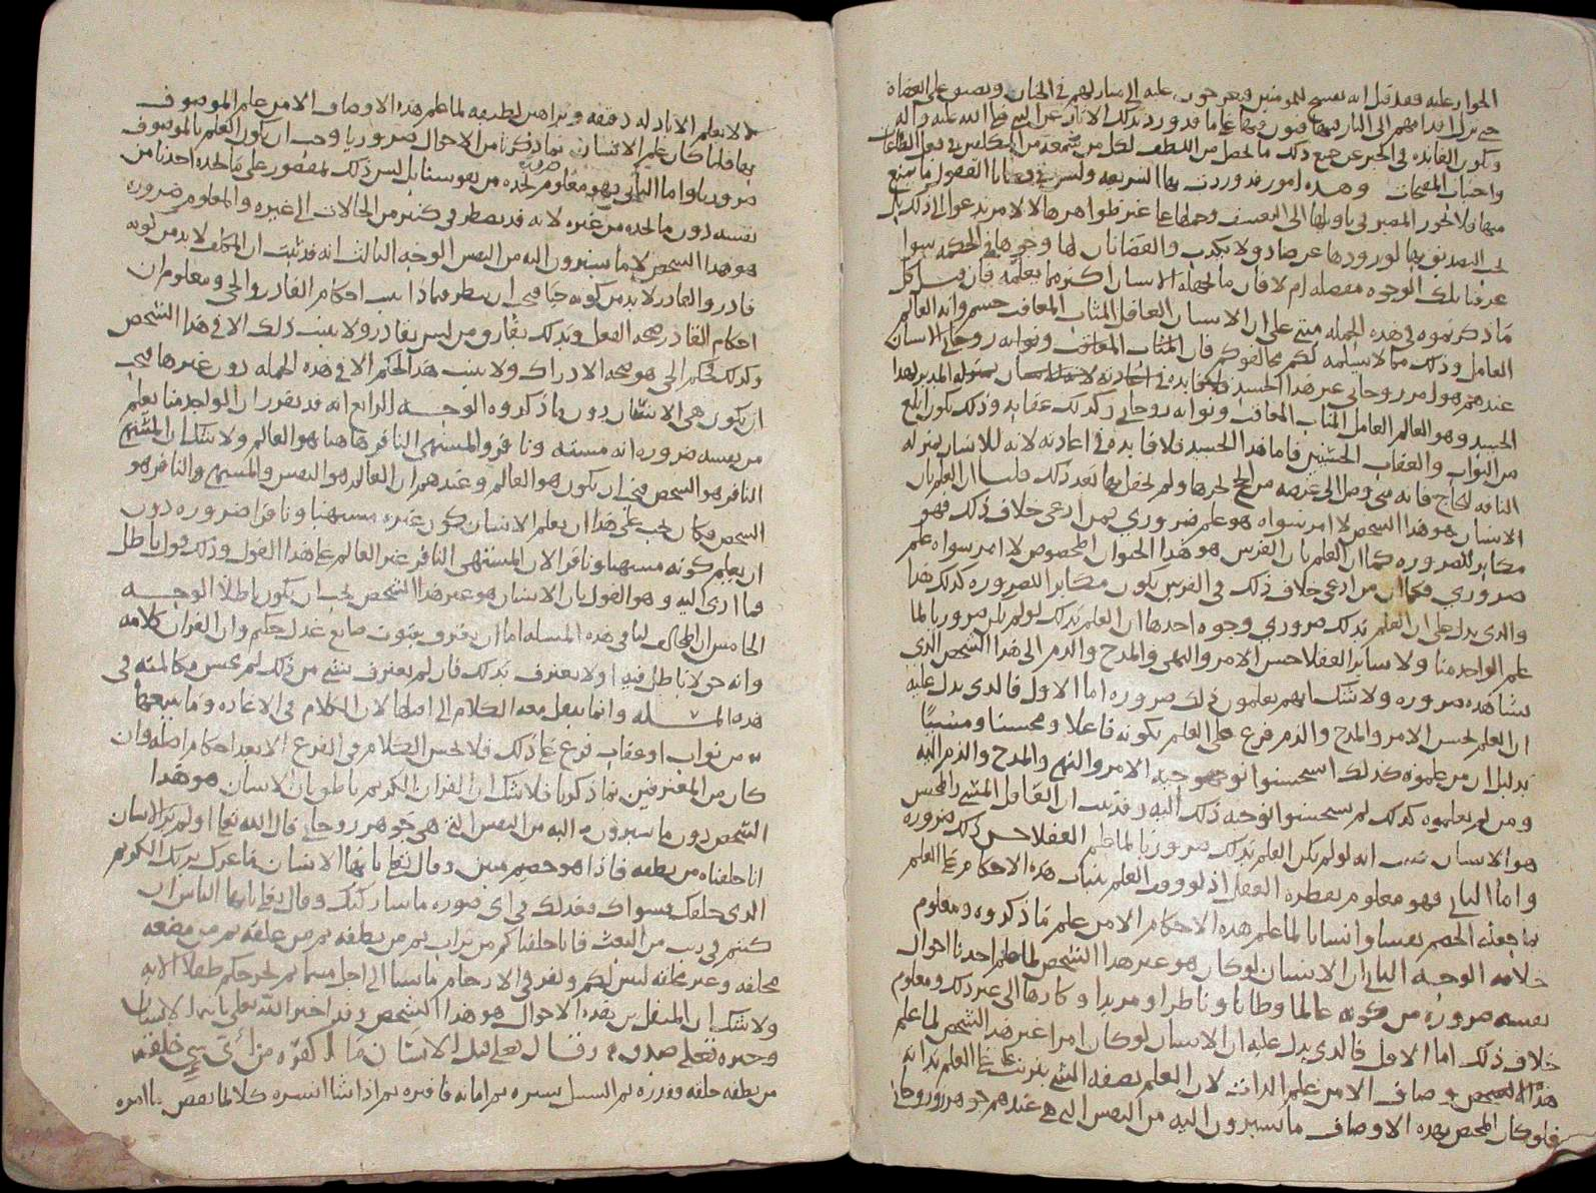 الجواز عليه فقد قيل انه يفسح للمؤمنين فيعرجون عليه الى منازلهم في الجنان ويضيق على العصاة
حتى تزل اقدامهم الى النار فيها فيقعون فيها على ما قد ورد بذلك الاثار عن النبي صلى الله عليه وآله
وتكون الفائده في الخبر عن جميع ذلك ما يحصل من اللطف لكل من سمعه من المكلفين في فعل الطاعات
واجتناب المقبحات وهذه امور قد وردت بها الشريعه وليس في قضايا العقول ما يمنع
منها فلا يجوز المصير في تاويلها الى التعسف وحملها على غير ظواهرها لا لامر يدعو الى ذلك بل
يجب التصديق بها لورودها عن صادق ولا يكذب والقضا بان لها وجوها في الحكمه سوا
عرفنا تلك الوجوه مفصله ام لا فان ما يجهله الانسان اكثر مما يعلمه فان قيل كل
ما ذكرتموه في هذه الجمله مبني على ان الانسان العاقل المثاب المعاقب جسم وانه العالم
العامل وذلك مما لا يسلمه لكم مخالفوكم فان المثاب المعاقب وثوابه روحاني الانسان
عندهم هو امر روحاني غير هذا الجسد
الجسد وهو العالم العامل المثاب المعاقب وثوابه روحاني وكذلك عقابه وذلك يكون ابلغ
من الثواب والعقاب الجسميين فاما هذا الجسد فلا فايده في اعادته لانه للانسان بمنزله
الناقه للحاج فانه متى وصل الى غرضه من الحج نحرها ولم يحفل بها بعد ذلك قلنا ان العلم بان
الانسان هو هذا الشخص لا امر سواه هو علم ضروري فمن ادعى خلاف ذلك فهو
مكابر للضروره كما ان العلم بان الفرس هو هذا الحيوان المخصوص لا امر سواه علم
ضروري فكما ان من ادعى خلاف ذلك في الفرس يكون مكابرا للضروره كذلك هنا
والذي يدل على ان العلم بذلك ضروري وجوه احدها ان العلم بذلك لو لم يكن ضروريا لما
علم الواحد منا ولا ساير العقلا حسن الامر والنهي والمدح والذم الى هذا الشخص الذي
نشاهده ضروره ولا شك انهم يعلمون ذلك ضروره اما الاول فالذي يدل عليه
ان العلم بحسن الامر والمدح والذم فرع على العلم بكونه فاعلا ومحسنا ومسيئا
بدليل ان من علموه كذلك استحسنوا توجه الامر والنهي والمدح والذم اليه
ومن لم يعلموه كذلك لم يستحسنوا توجه ذلك اليه وقد ثبت ان الفاعل المسي والمحسن
هو الانسان فثبت انه لو لم يكن العلم بذلك ضروريا لما علم العقلا حسن ذلك ضروره
واما الثاني فهو معلوم بفطره العقل اذ لو وقف العلم بثبات هذه الاحكام على العلم
بما جعله الخصم نفسا وانسانا لما علم هذه الاحكام الا من علم ما ذكروه ومعلوم
خلافه الوجه الثاني ان الانسان لو كان هو غير هذا الشخص لما علم احدنا احوال
نفسه ضروره من كونه عالما وظانا وناظرا ومريدا وكارها الى غير ذلك ومعلوم
خلاف ذلك اما الاول فالذي يدل عليه ان الانسان لو كان امرا غير هذا الشخص لما علم
هذه الاوصاف الا من علم الذات لان العلم بصفه الشي يترتب على العلم بذاته
فلو كان المختص بهذه الاوصاف ما يشيرون اليه من النفس التي هي عندهم جوهر روحاني
لا يعلم الا بادله دقيقه وبراهين لطيفه لما علم هذه الاوصاف الا من علم الموصوف
بها فلما كان علم الانسان بما ذكرنا من الاحوال ضروريا وجب ان يكون العلم بالموصوف
ضروريا واما الثاني فهو معلوم ضروره نجده من نفوسنا بل ليس ذلك بمقصور على ما يجده احدنا من
نفسه دون ما يجده من غيره لانه قد يضطر في كثير من الحالات الى غيره والمعلوم ضروره
هو هذا الشخص لا ما يشيرون اليه من النفس الوجه الثالث انه قد ثبت ان المكلف لا بد من كونه
قادرا والقادر لا بد من كونه حيا فيجب ان ينظر فيما ذا يثبت احكام القادر والحي ومعلوم ان
احكام القادر صحه الفعل وبذلك يفارق من ليس بقادر ولا يثبت ذلك الا في هذا الشخص
وكذلك حكم الحي هو صحه الادراك ولا يثبت هذا الحكم الا في هذه الجمله دون غيرها فيجب
ان يكون هي الانسان دون ما ذكروه الوجه الرابع انه قد تقرر ان الواحد منا يعلم
من نفسه ضروره انه مشته ونافر والمشتهي النافر هاهنا هو العالم ولا شك ان المشتهي
النافر هو الشخص فيجب ان يكون هو العالم وعندهم ان العالم هو النفس والمشتهي والنافر هو
الشخص فكان يجب على هذا ان يعلم الانسان كون غيره مشتهيا ونافرا ضروره دون
ان يعلم كونه مشتهيا ونافرا لان المشتهي النافر غير العالم على هذا القول وذلك قول باطل
فما ادى اليه وهو القول بان الانسان هو غير هذا الشخص يجب ان يكون باطلا الوجه
الخامس ان المخالف لنا في هذه المسله اما ان يعترف بثبوت صانع عدل حكيم وان القران كلامه
وانه حق لا باطل فيه او لا يعترف بذلك فان لم يعترف بشي من ذلك لم يحسن مكالمته في
هذه المسله وانما ينقل معه الكلام الى اصلها لان الكلام في الاعاده وما يتبعها
من ثواب او عقاب فرع على ذلك فلا يحسن الكلام في الفرع الا بعد احكام اصله وان
كان من المعترفين بما ذكرنا فلا شك ان القران الكريم ناطق بان الانسان هو هذا
الشخص دون ما يشيرون اليه من النفس التي هي جوهر روحاني قال الله تعالى اولم ير الانسان
انا خلقناه من نطفه فاذا هو خصيم مبين وقال تعالى يا ايها الانسان ما غرك بربك الكريم
الذي خلقك فسواك فعدلك في اي صوره ما شا ركبك وقال تعالى يا ايها الناس ان
كنتم في ريب من البعث فانا خلقناكم من تراب ثم من نطفه ثم من علقه ثم من مضغه
مخلقه وغير مخلقه لنبين لكم ونقر في الارحام ما نشا الى اجل مسمى ثم نخرجكم طفلا الايه
ولا شك ان المنتقل بين هذه الاحوال هو هذا الشخص وقد اخبر الله تعالى بانه الانسان
وخبره تعالى صدق وقال تعالى قتل الانسان ما اكفره من أي شي خلقه
من نطفه خلقه فقدره ثم السبيل يسره ثم اماته فاقبره ثم اذا شا انشره كلا لما يقض ما امره